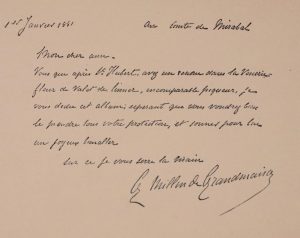 1er Janvier 1881 Au Comte de Mirabal
Mon cher ami
Vous que après St Hubert, avez un renom dans la Vendée
fleur de Valet de limier, incomparable piqueur, je
vous dédie cet album, espérant que vous voudrez bien
le prendre sous votre protection, et sonner pour lui
un joyeux
sur ce je vous serre la main
G Millin de Grandmaison